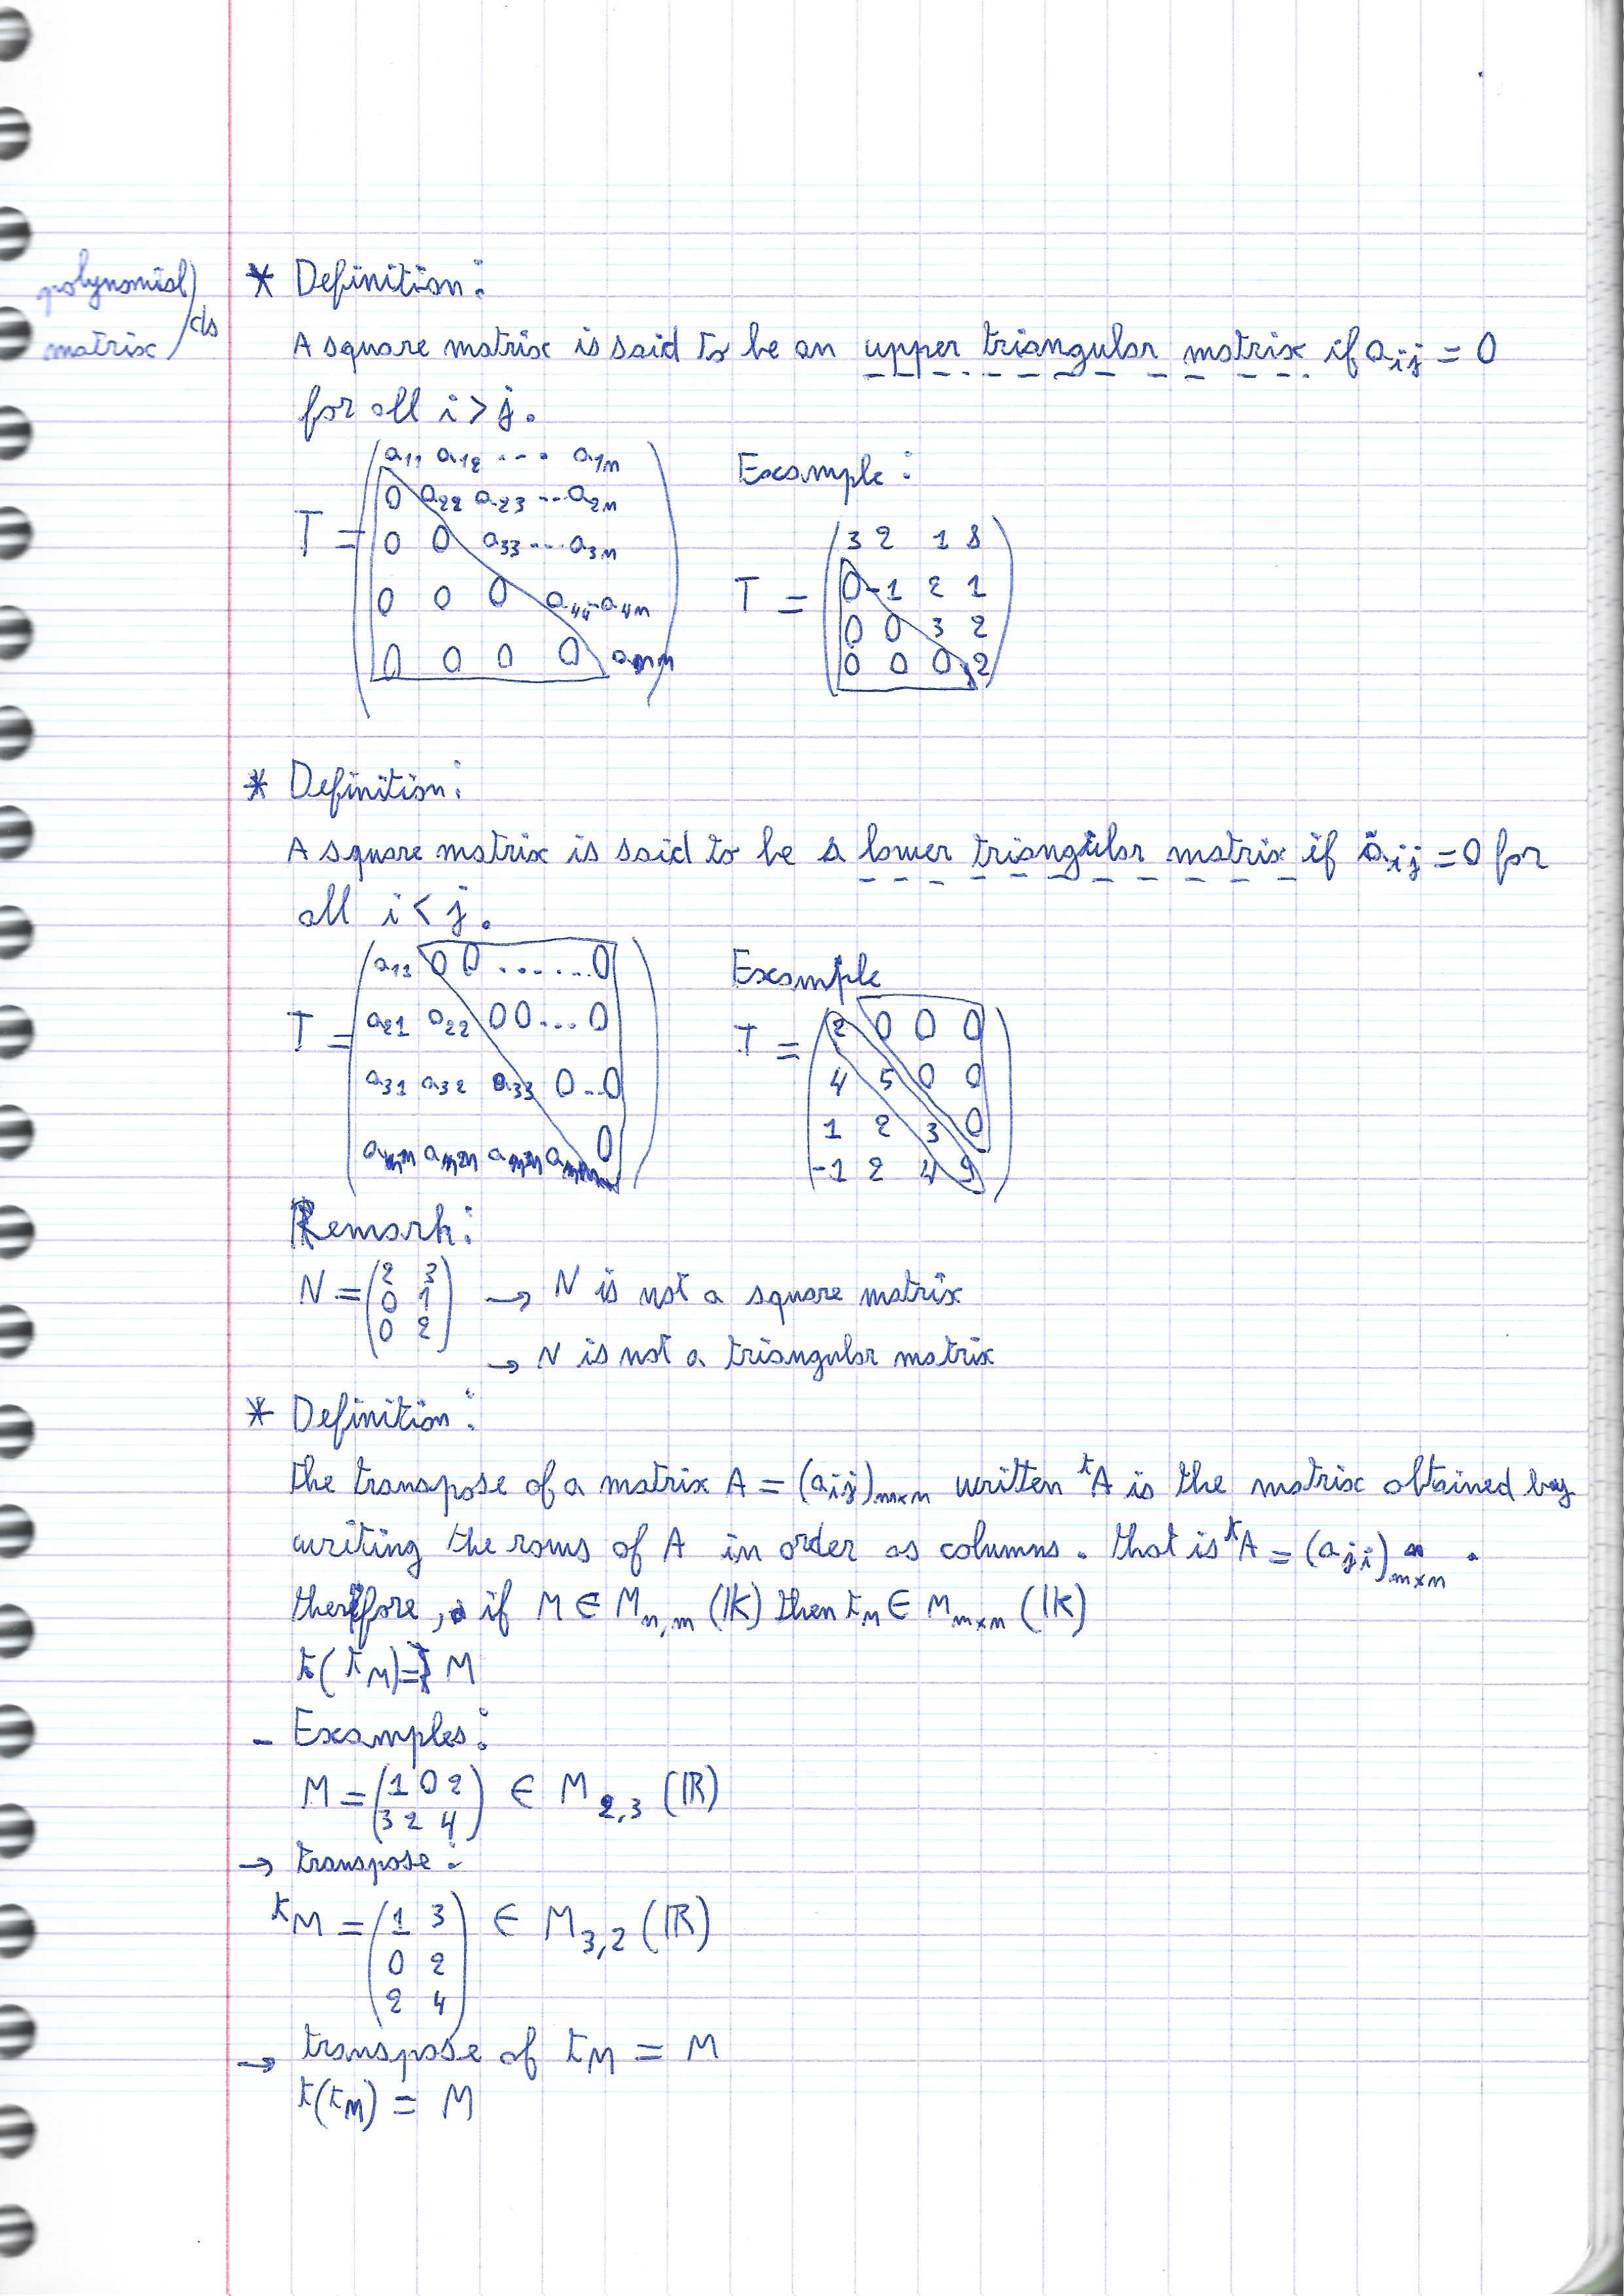 polynomial
matrix
ds
* Definition:
A square matrix is said to be an upper triangular matrix if aij = 0
for all i > j.
T = (a11 a12 ... a1n
0 a22 a23 ... a2n
0 0 a33 ... a3n
0 0 0 a44 - a4n
0 0 0 0 ann)
Example:
T = (3 2 1 8
0 -1 2 1
0 0 3 2
0 0 0 2)
* Definition:
A square matrix is said to be a lower triangular matrix if aij = 0 for
all i < j.
T = (a11 0 0 ...... 0
a21 a22 0 0 ... 0
a31 a32 a33 0 .. 0
0)
Example
T = (2 0 0 0
4 5 0 0
1 2 3 0
-1 2 4 9)
Remark:
N = (2 3
0 1
0 2)
→ N is not a square matrix
→ N is not a triangular matrix
* Definition:
the transpose of a matrix A = (aij)m×n written tA is the matrix obtained by
writing the rows of A in order as columns. that is tA = (aji)m×n .
therefore, if M ∈ Mn,m (K) then tM ∈ Mm×n (K)
t(tM) = M
- Examples:
M = (1 0 2
3 2 4) ∈ M2,3 (R)
→ transpose:
tM = (1 3
0 2
2 4) ∈ M3,2 (R)
→ transpose of tM = M
t(tM) = M